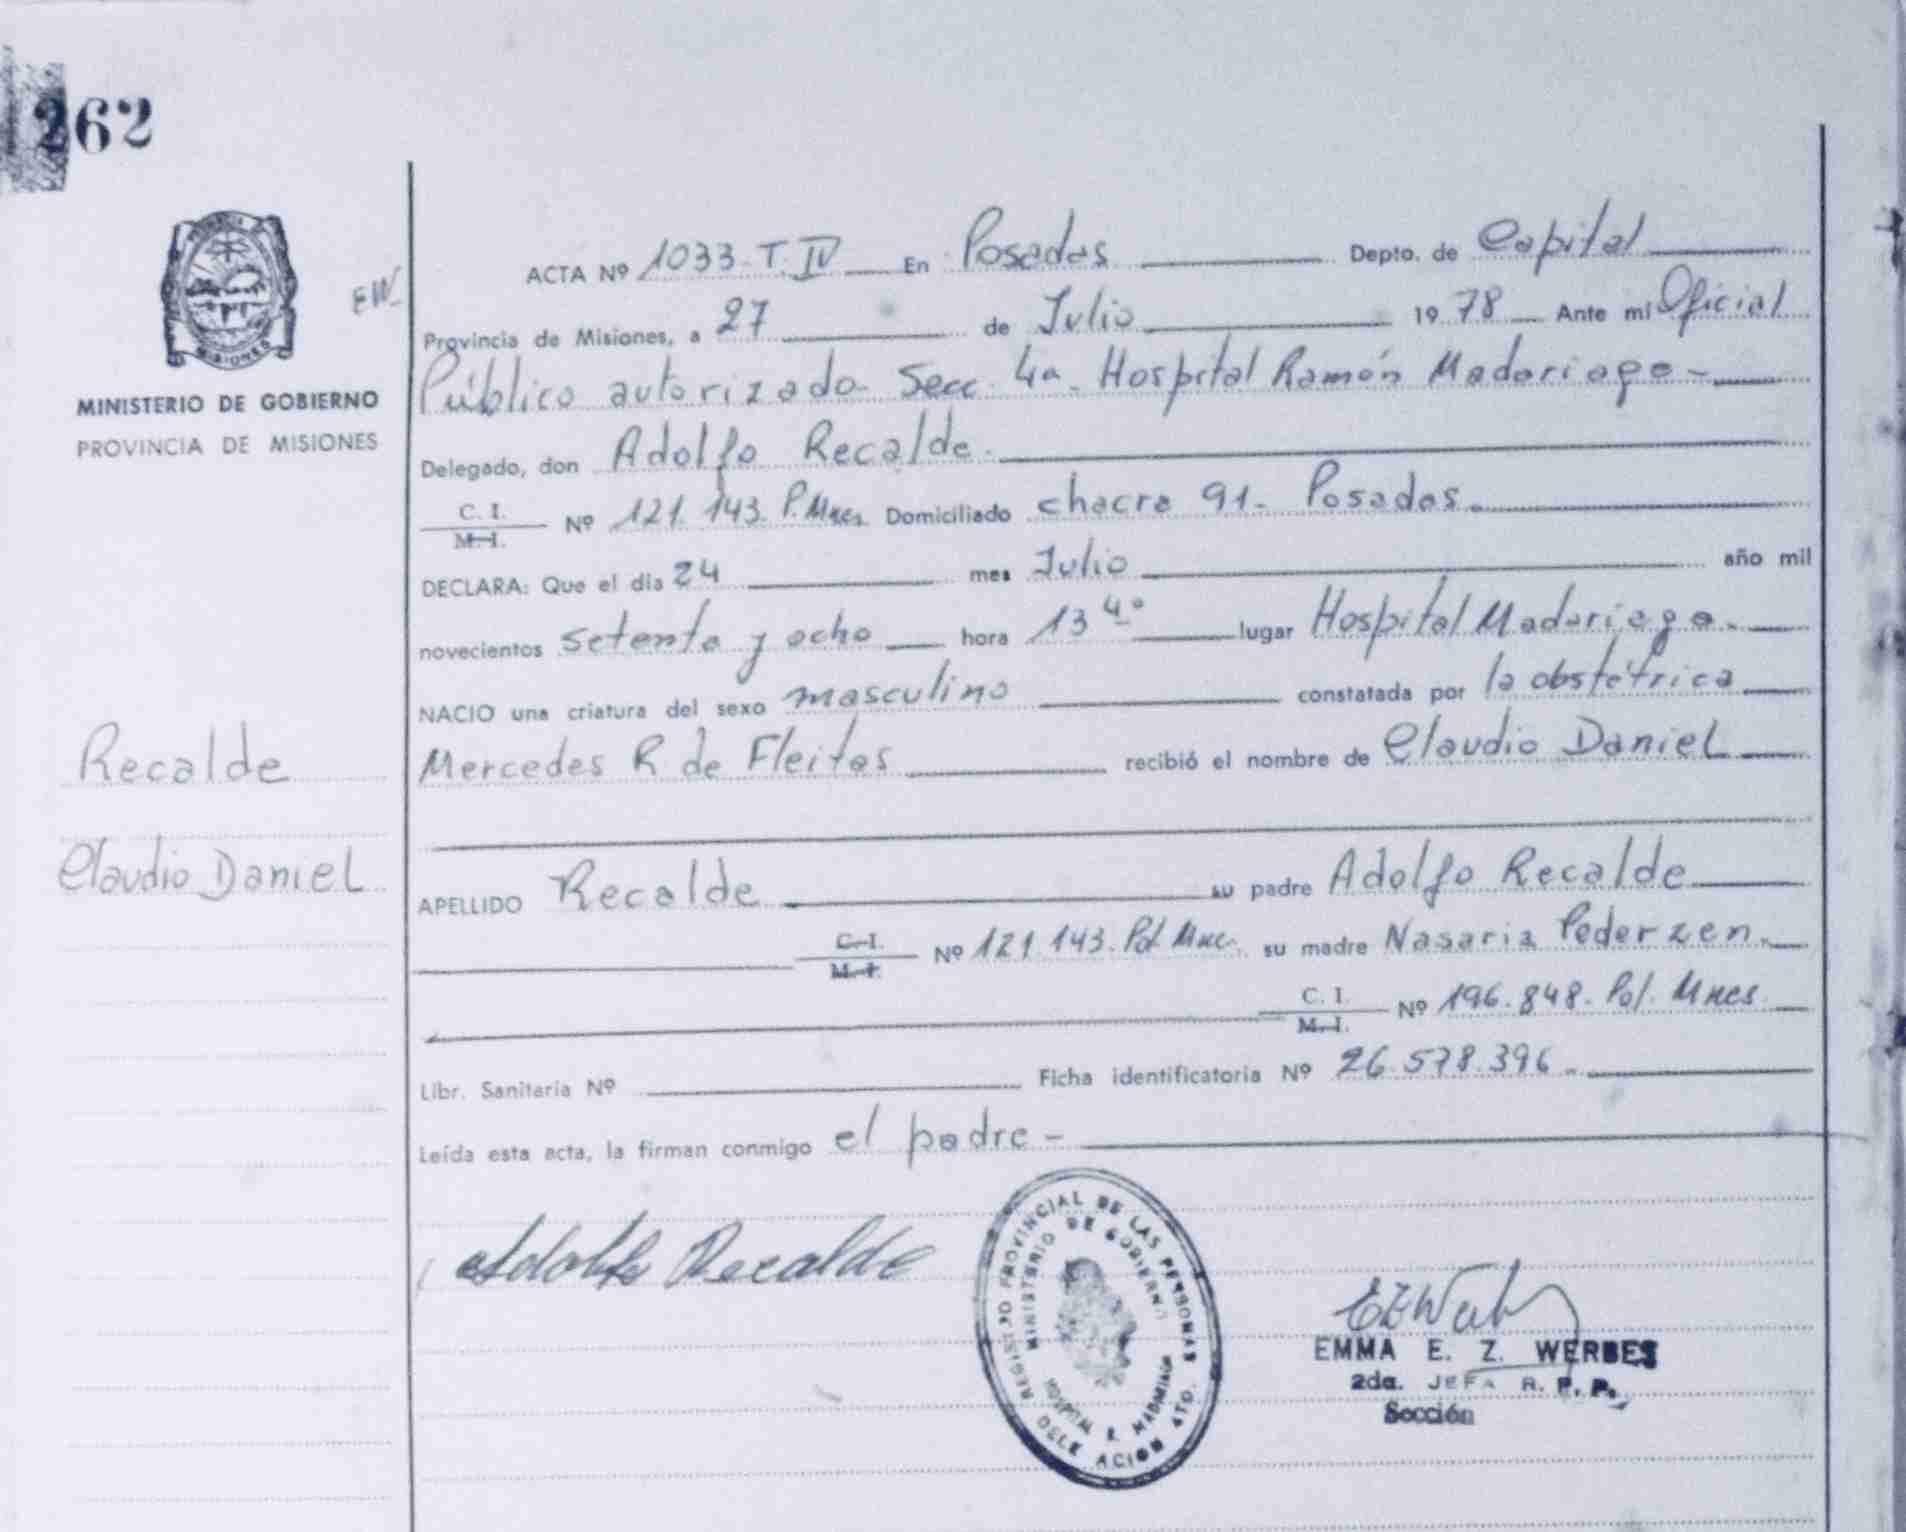 262
MISIONES
EW
MINISTERIO DE GOBIERNO
PROVINCIA DE MISIONES
Recalde
Claudio Daniel
ACTA Nº 1033. T. IV En Posadas Depto. de Capital
Provincia de Misiones, a 27 de Julio 19 78 Ante mi Oficial
Público autorizado Secc. 4a. Hospital Ramón Madariaga -
Delegado, don Adolfo Recalde.
C. I.
M. I. Nº 121.143. P. Mnes. Domiciliado chacra 91. Posadas.
DECLARA: Que el día 24 mes Julio año mil
novecientos setenta y ocho hora 13 40 lugar Hospital Madariaga.
NACIO una criatura del sexo masculino constatada por la obstétrica
Mercedes R de Fleitas recibió el nombre de Claudio Daniel
APELLIDO Recalde su padre Adolfo Recalde
C. I.
M. I. Nº 121.143. Pol. Mnes. su madre Nasaria Pederzen.
C. I.
M. I. Nº 196.848. Pol. Mnes.
Libr. Sanitaria Nº Ficha identificatoria Nº 26.578.396.
Leída esta acta, la firman conmigo el padre -
Adolfo Recalde
REGISTRO PROVINCIAL DE LAS PERSONAS
MINISTERIO DE GOBIERNO
HOSPITAL R. MADARIAGA
DELEGACION 4TO.
EMMA E. Z. WERBES
2da. JEFA R. P. P.
Sección